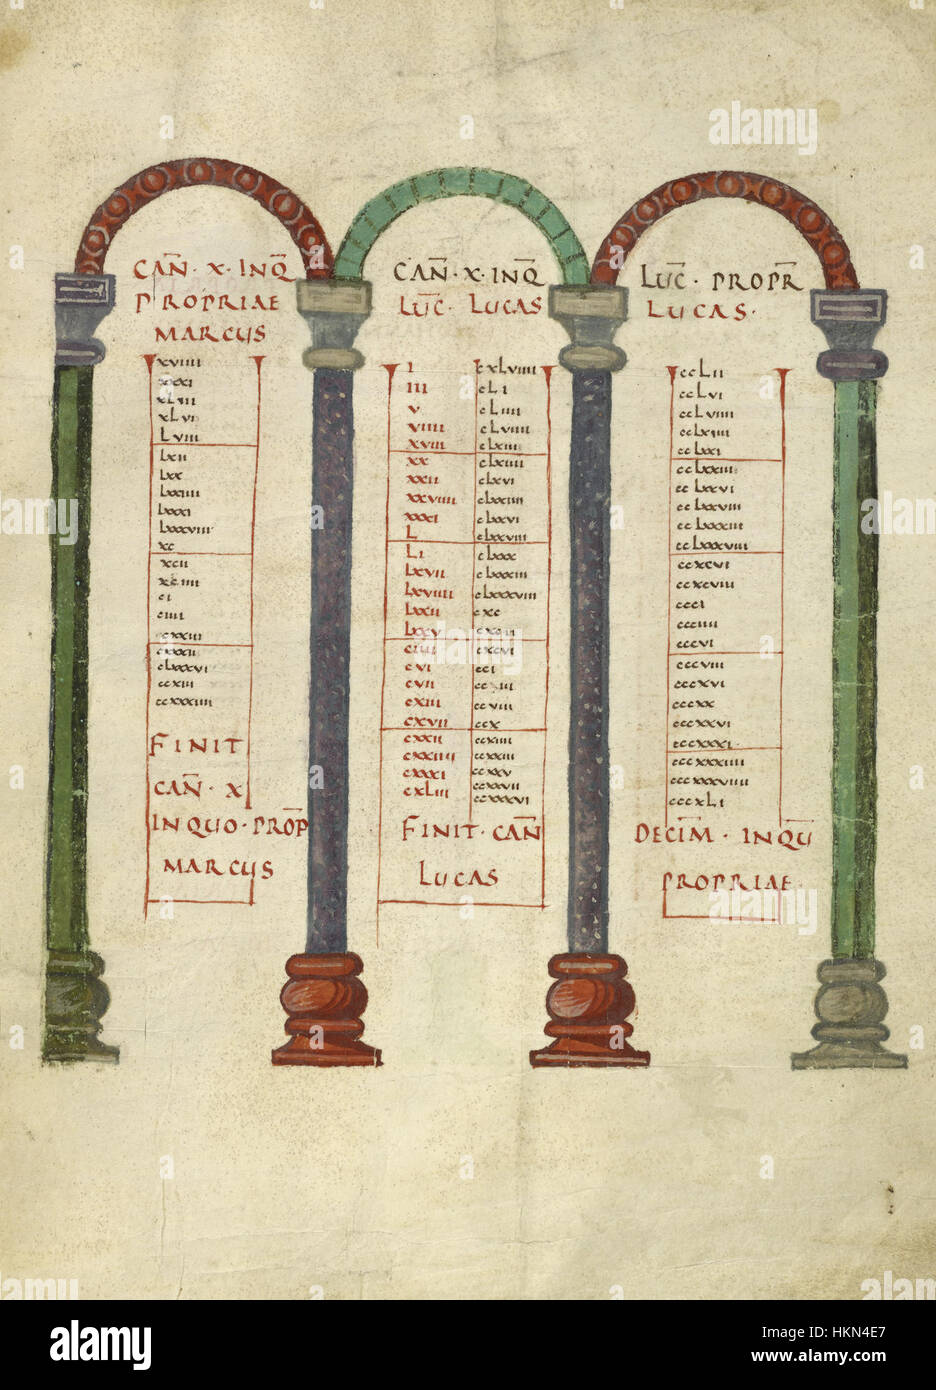 CAN̄ · X · INQ̄
PROPRIAE
MARCUS
xviiii
xxxi
xLiii
xLvi
Lviii
Lxii
Lxx
Lxxiiii
Lxxxi
Lxxxviii
xc
xcii
xciiii
ci
ciiii
cxxiii
cxxxii
cLxxxvi
ccxiii
ccxxxiiii
FINIT
CAN̄ · X
INQUO · PROP̄
MARCUS
CAN̄ · X · INQ̄
LUC̄ · LUCAS
I cxLviiii
III cLi
V cLiiii
VIIII cLviiii
XVIII cLxiii
XX cLxiiii
XXII cLxvi
XXVIIII cLxxiii
XXXI cLxxvi
L cLxxviii
LI cLxxx
LXVII cLxxxiii
LXVIIII cLxxxviii
LXXII cxc
LXXV
CIIII cxcvi
CVI cci
CVII
CXIII ccviii
CXVII ccx
CXXII ccxiiii
CXXIIII ccxxiii
CXXXI ccxxv
CXLIII ccxxvii
ccxxxvi
FINIT · CAN̄
LUCAS
LUC̄ · PROPR̄
LUCAS ·
ccLii
ccLvi
ccLviiii
ccLxiiii
ccLxxi
ccLxxiii
ccLxxvi
ccLxxviii
ccLxxxiii
ccLxxxviii
ccxcvi
ccxcviii
ccci
ccciiii
cccvi
cccviii
cccxvi
cccxx
cccxxvi
cccxxxi
cccxxxiiii
cccxxxviiii
cccxLi
DECIM̄ · INQŪ
PROPRIAE ·
alamy
Image ID: HKN4E7
www.alamy.com